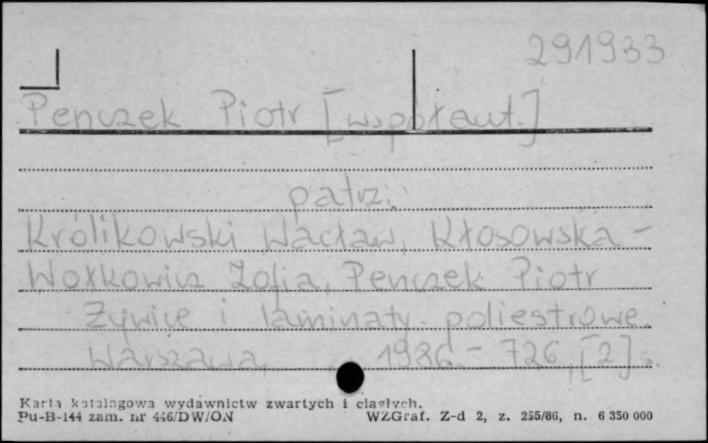 291933
Penczek Piotr [współaut.]
patrz:
Królikowski Wacław, Kłosowska-
Wołkowicz Zofia, Penczek Piotr
Żywice i laminaty poliestrowe.
Warszawa, 1986. - 726, [2] s.
Karta katalogowa wydawnictw zwartych i ciągłych.
Pu-B-144 zam. nr 446/DW/ON WZGraf. Z-d 2, z. 255/86, n. 6 350 000